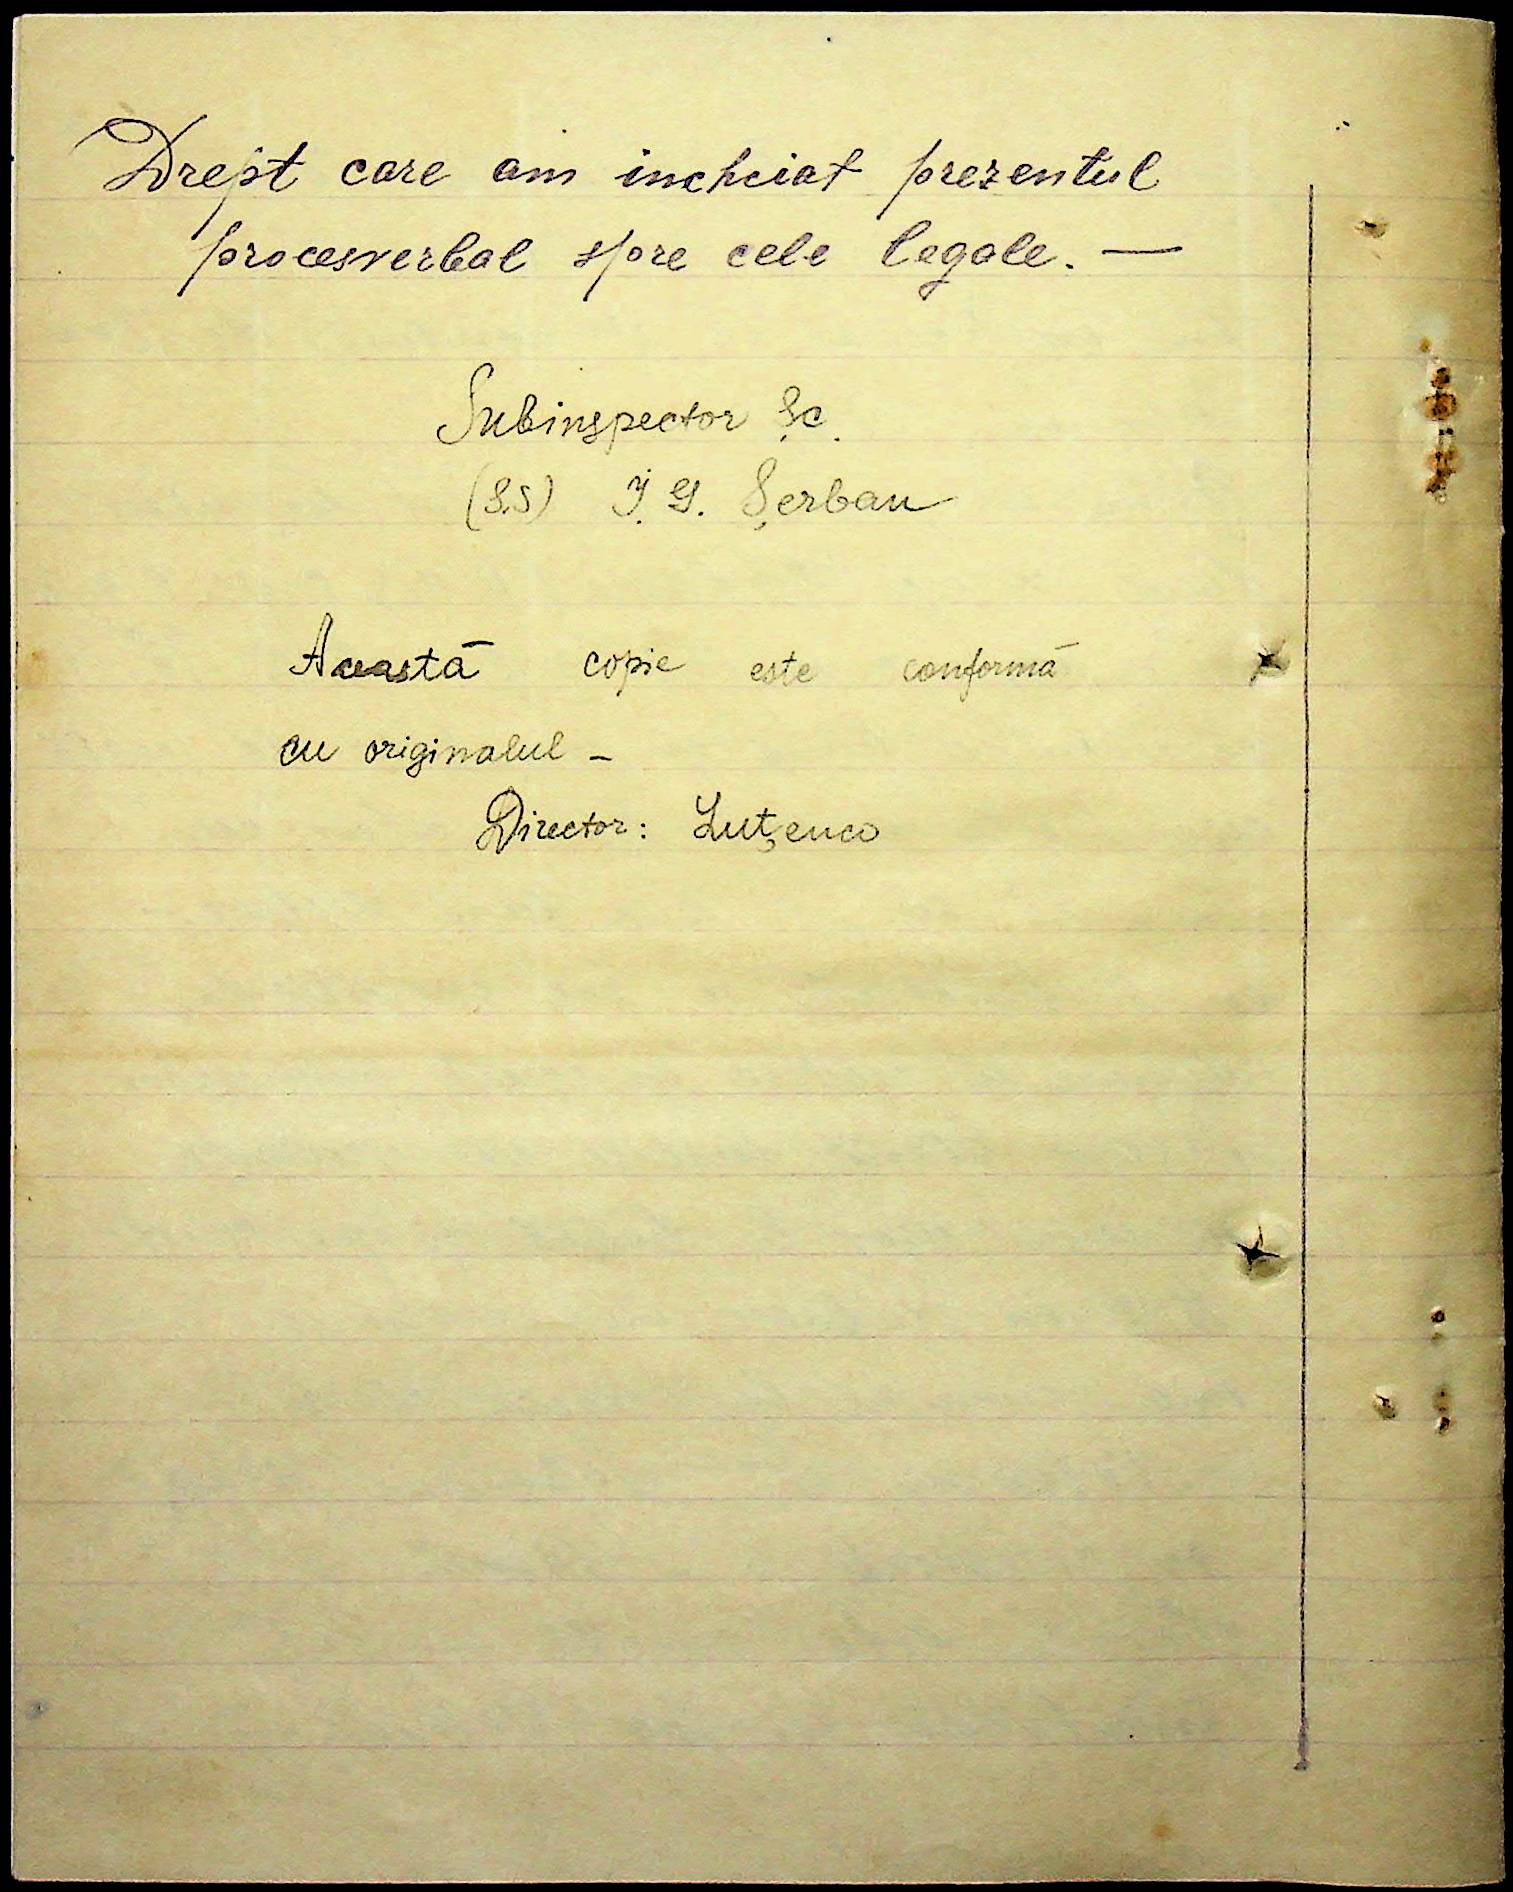 Drept care am incheiat prezentul
procesverbal spre cele legale. —
Subinspector Șc.
(S.S) I. G. Șerban
Aceastā copie este conformā
cu originalul –
Director: Luțenco